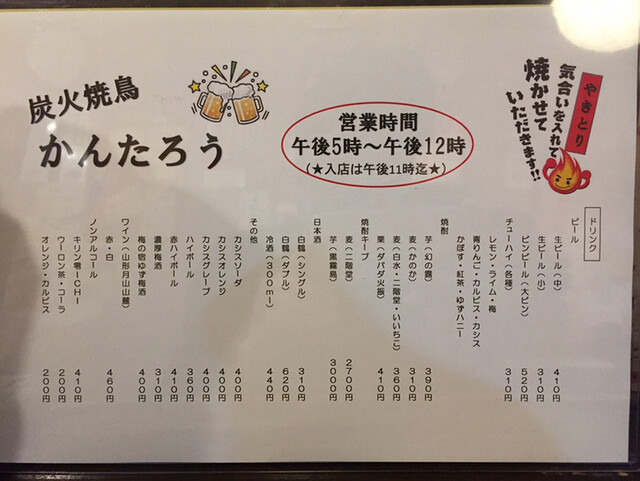 炭火焼鳥
かんたろう
営業時間
午後5時～午後12時
(★入店は午後11時迄★)
やきとり
気合いを入れて
焼かせて
いただきます!!
ドリンク
ビール
生ビール(中) 410円
生ビール(小) 310円
ビンビール(大ビン) 520円
チューハイ(各種) 310円
レモン・ライム・梅
青りんご・カルピス・カシス
かぼす・紅茶・ゆずハニー
焼酎
芋(幻の露) 390円
麦(かのか) 310円
麦(白水・二階堂・いいちこ) 360円
栗(ダバダ火振) 410円
焼酎キープ
麦(二階堂) 2700円
芋(黒霧島) 3000円
日本酒
白鶴(シングル) 310円
白鶴(ダブル) 620円
冷酒(300ml) 440円
その他
カシスソーダ 400円
カシスオレンジ 400円
カシスグレープ 400円
ハイボール 360円
赤ハイボール 410円
濃厚梅酒 310円
梅の宿ゆず梅酒 400円
ワイン(山形月山山麓)
赤・白 460円
ノンアルコール
キリン零ICHI 410円
ウーロン茶・コーラ 200円
オレンジ・カルピス 200円